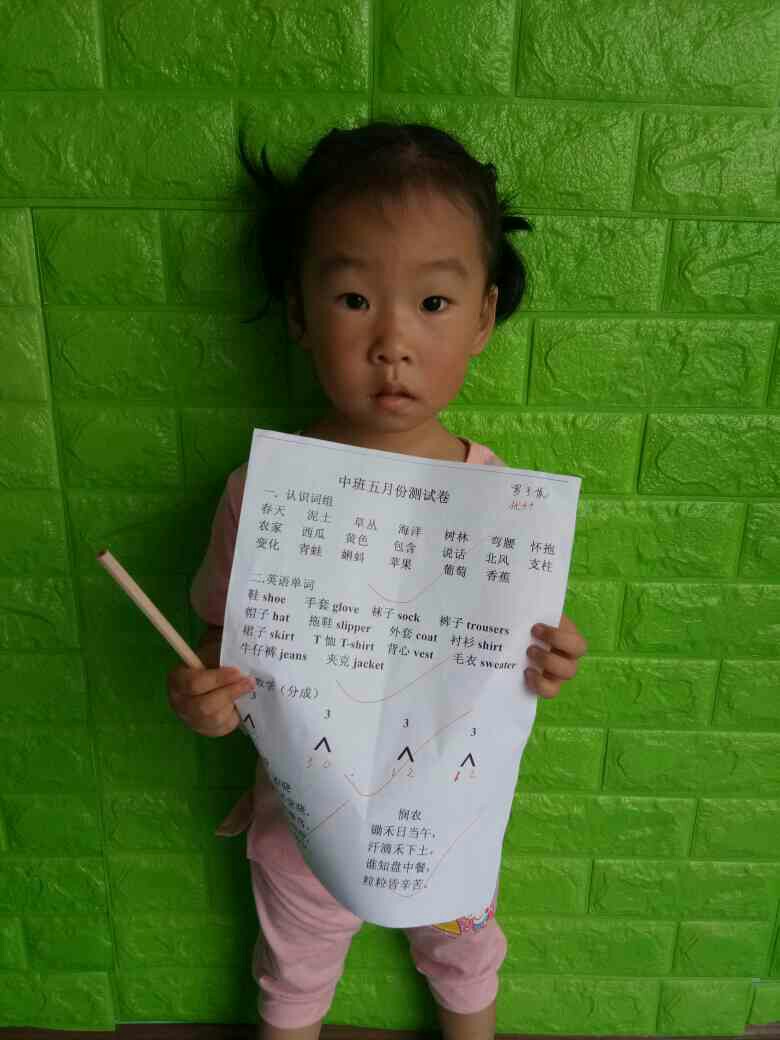 中班五月份测试卷
一、认识词组
春天 泥土 草丛 海洋 树林 弯腰 怀抱
农家 西瓜 黄色 包含 说话 北风 支柱
变化 青蛙 蝌蚪 苹果 葡萄 香蕉
二.英语单词
鞋 shoe 手套 glove 袜子 sock 裤子 trousers
帽子 hat 拖鞋 slipper 外套 coat 衬衫 shirt
裙子 skirt T 恤 T-shirt 背心 vest 毛衣 sweater
牛仔裤 jeans 夹克 jacket
数学（分成）
3 3 3 3
3 0 1 2 1 2
悯农
锄禾日当午，
汗滴禾下土。
谁知盘中餐，
粒粒皆辛苦。